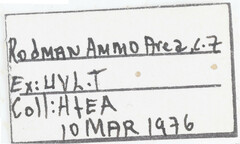 RODMAN AMMO Area, C.Z
Ex: UV L.T
Coll: HtEA
10 MAR 1976